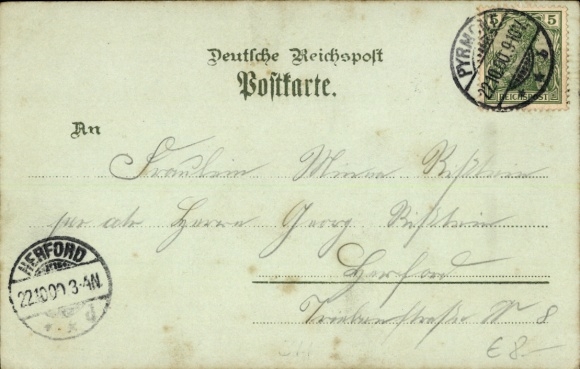 Deutsche Reichspost
Postkarte.
5 5
REICHSPOST
PYRMO
22.10.00.9-10V.
An
Fräulein Minna
per adr Herrn Georg
Herford
HERFORD
22.10.00 3-4N.
№ 8
€ 8.-